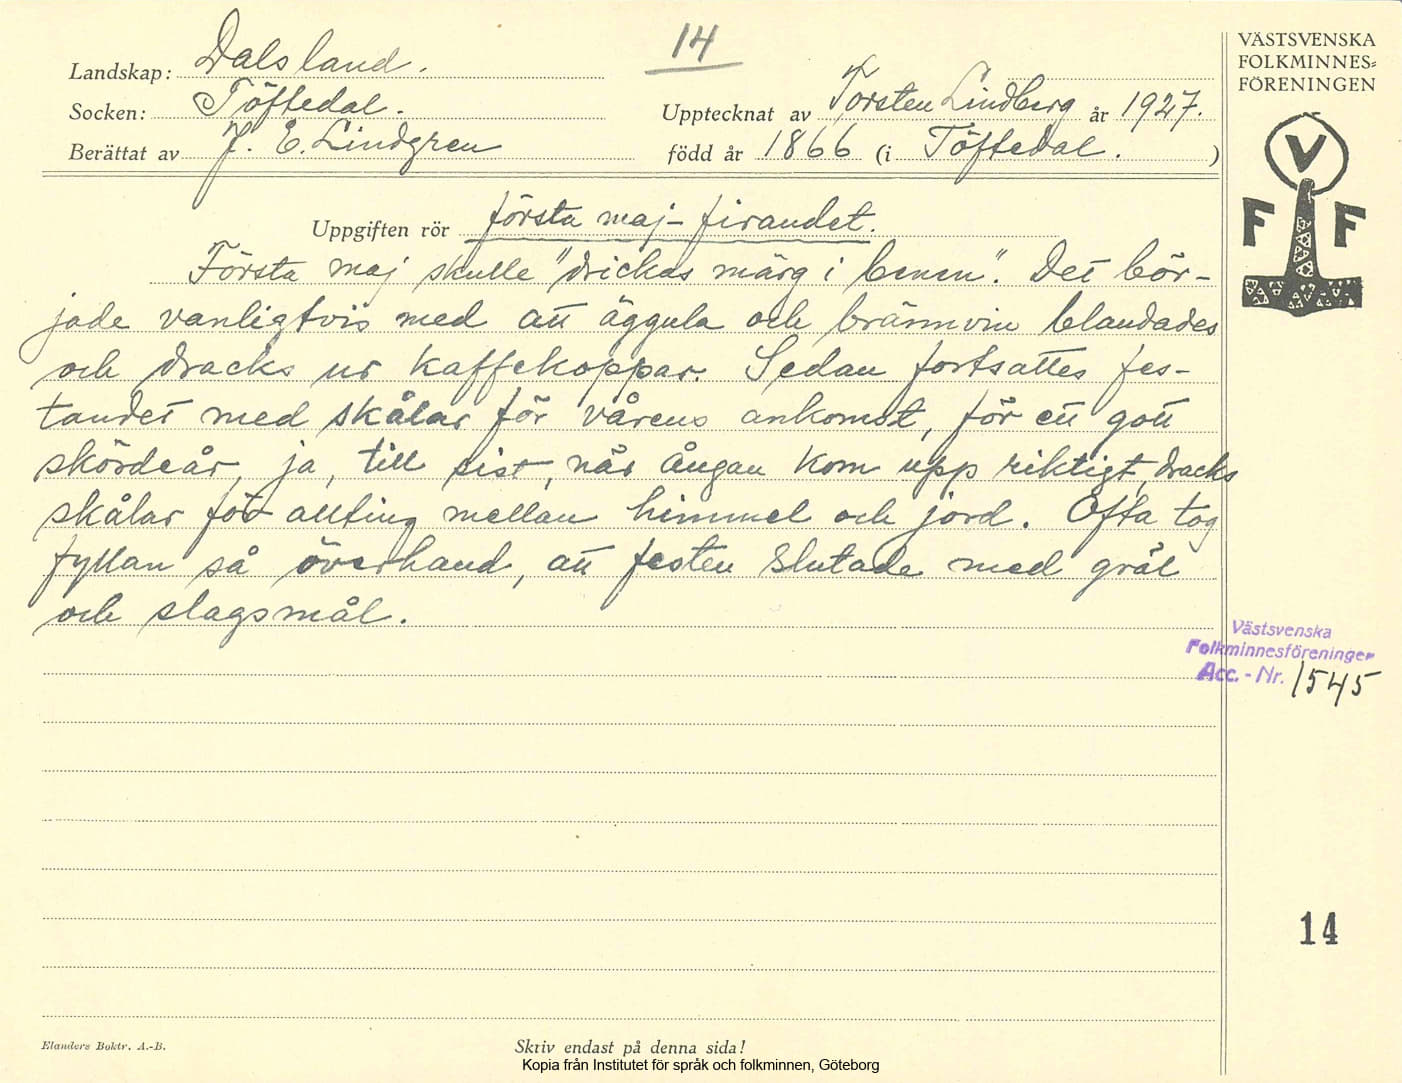 14
VÄSTSVENSKA
FOLKMINNES=
FÖRENINGEN
Landskap: Dalsland.
Socken: Töftedal.
Upptecknat av Torsten Lindberg år 1927.
Berättat av J. E. Lindgren
född år 1866 (i Töftedal.)
V
F F
Uppgiften rör första maj-firandet.
Första maj skulle "drickas märg i benen". Det bör-
jade vanligtvis med att äggula och brännvin blandades
och dracks ur kaffekoppar. Sedan fortsattes fes-
tandet med skålar för vårens ankomst, för ett gott
skördeår, ja, till sist, när ångan kom upp riktigt, dracks
skålar för allting mellan himmel och jord. Ofta tog
fyllan så överhand, att festen slutade med gräl
och slagsmål.
Västsvenska
Folkminnesföreningen
Acc. - Nr. 1545
14
Elanders Boktr. A.-B.
Skriv endast på denna sida!
Kopia från Institutet för språk och folkminnen, Göteborg